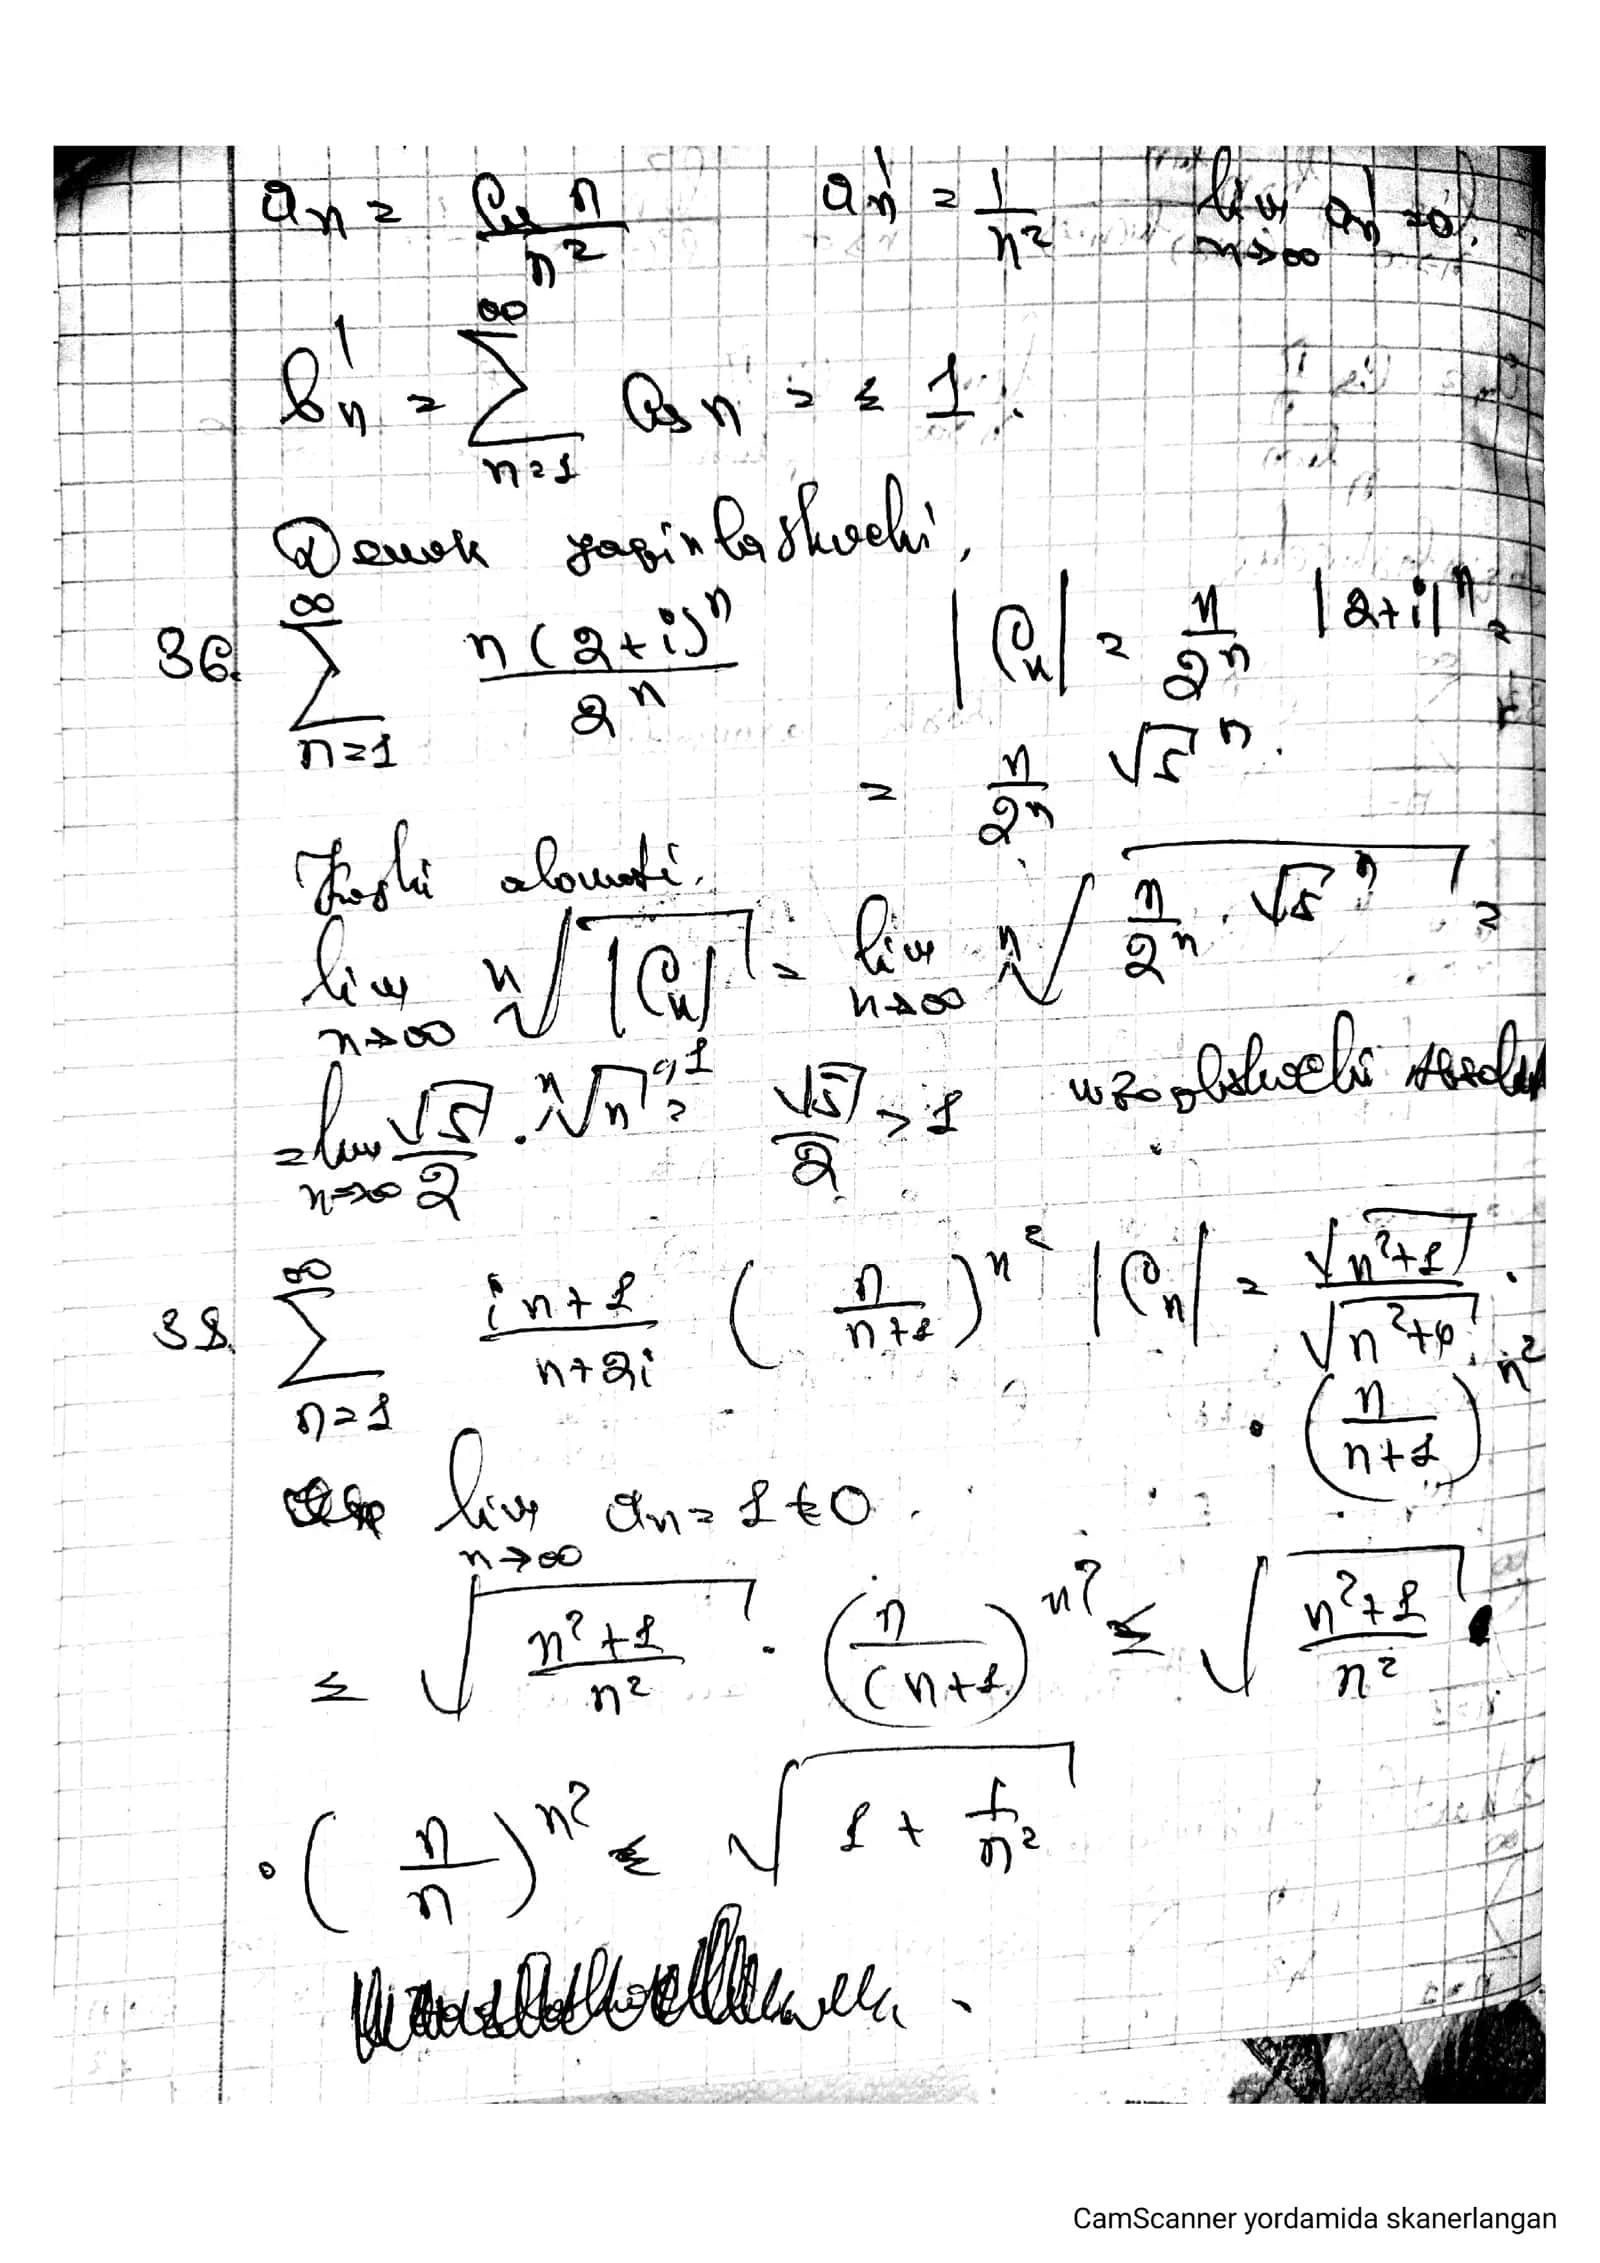 aₙ = cos n / n²   a'ₙ = 1/n²   lim n→∞ a'ₙ = 0.
b'ₙ = ∑ n=1 ∞ cos n = ≤ 1.
Demak yaqinlashuvchi.
36. ∑ n=1 ∞ n(2+i)ⁿ / 2ⁿ   |Cₙ| = n/2ⁿ |2+i|ⁿ =
= n/2ⁿ √5ⁿ.
Koshi alomati.
lim n→∞ ⁿ√|Cₙ| = lim n→∞ ⁿ√(n/2ⁿ · √5ⁿ) =
= lim n→∞ √5/2 · ⁿ√n = √5/2 > 1 uzoqlashuvchi
38. ∑ n=1 ∞ (in+1)/(n+2i) (n/(n+1))^n² |Cₙ| = √(n²+1)/√(n²+4) ·
· (n/(n+1))^n²
lim n→∞ aₙ = 1 ≠ 0.
≤ √((n²+1)/n²) · (n/(n+1))^n² ≤ √((n²+1)/n²) ·
· (n/n)^n² ≤ √(1 + 1/n²)
CamScanner yordamida skanerlangan